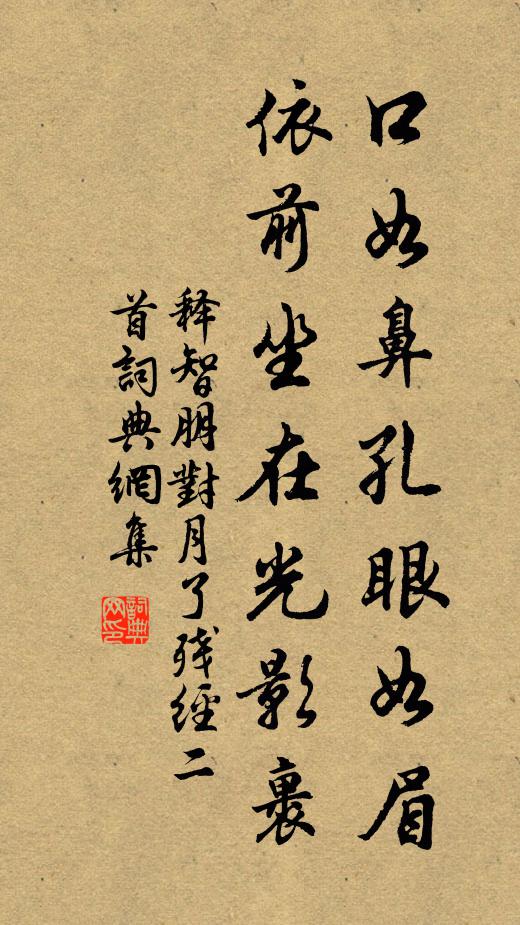 口如鼻孔眼如眉
依前坐在光影裹
释智朋對月了残經二
首詞典網集
詞典
网印